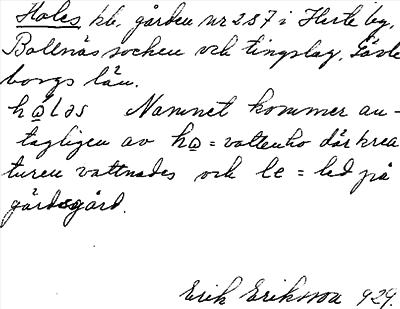 Holes kb. gården nr 287 i Herte by,
Bollnäs socken och tingslag, Gävle
borgs län.
ho̲ləs Namnet kommer an-
tagligen av ho̲ = vattenho där krea
turen vattnades och le = led på
gärdsgård.
Erik Eriksson 929.